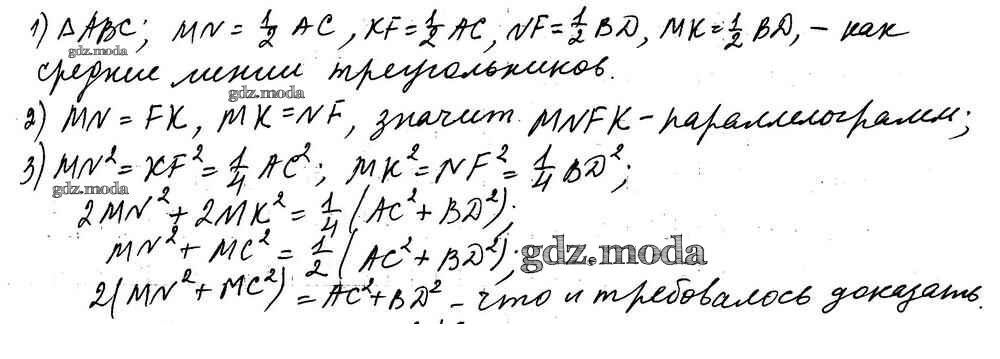 1) ΔABC; MN = 1/2 AC, KF = 1/2 AC, NF = 1/2 BD, MK = 1/2 BD, – как
gdz.moda
средние линии треугольников.
gdz.moda
2) MN = FK, MK = NF, значит MNFK – параллелограмм;
3) MN² = KF² = 1/4 AC²; MK² = NF² = 1/4 BD²;
gdz.moda
2MN² + 2MK² = 1/4 (AC² + BD²);
MN² + MC² = 1/2 (AC² + BD²);
gdz.moda
2(MN² + MC²) = AC² + BD² – что и требовалось доказать.